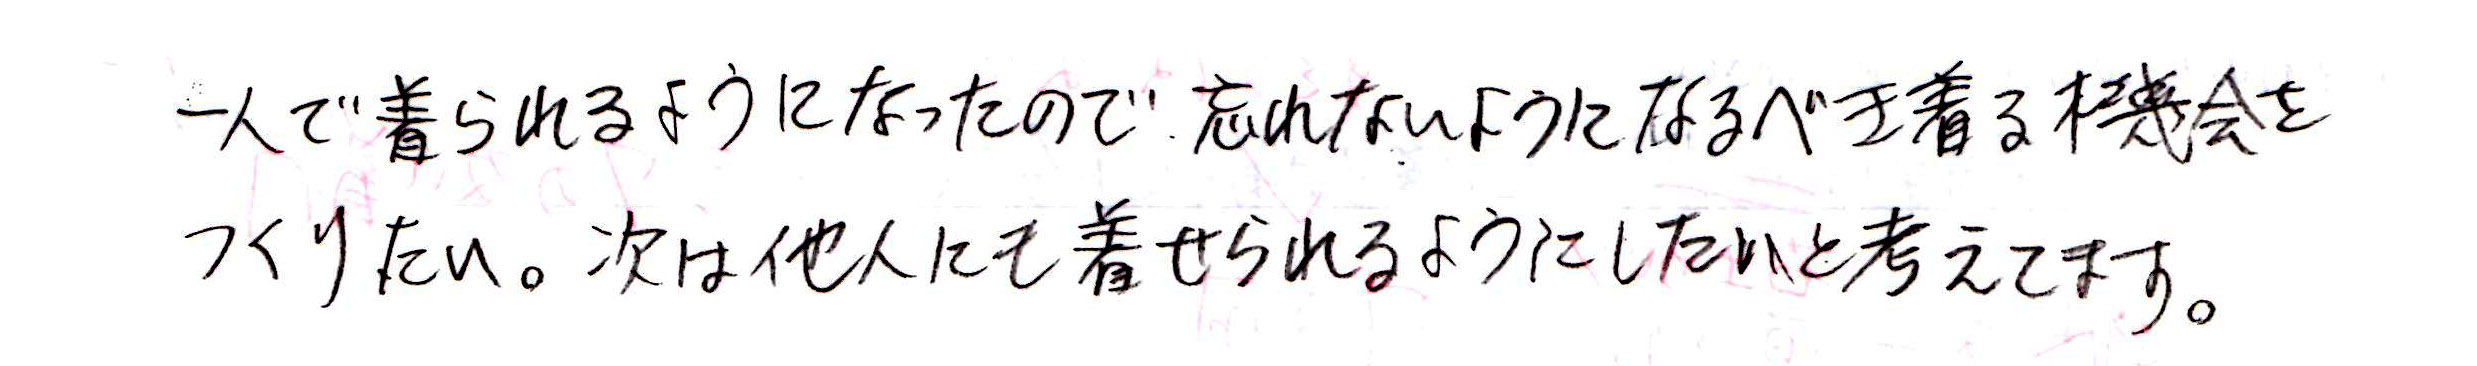 一人で着られるようになったので忘れないようになるべき着る機会を
つくりたい。次は他人にも着せられるようにしたいと考えてます。